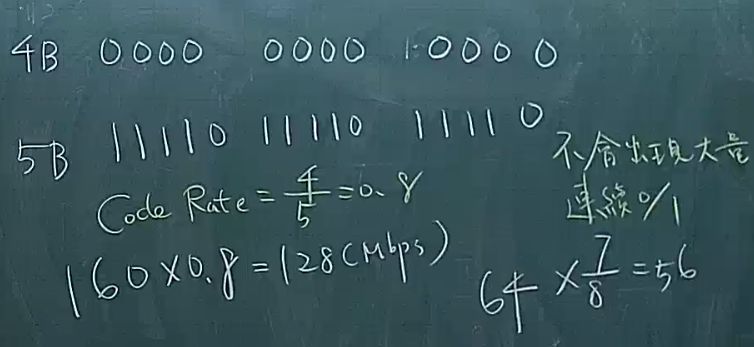 4B 0000 0000 10000
5B 11110 11110 11110
不會出現大量
連續0/1
Code Rate = 4/5 = 0.8
160×0.8=128(Mbps)
64×7/8=56